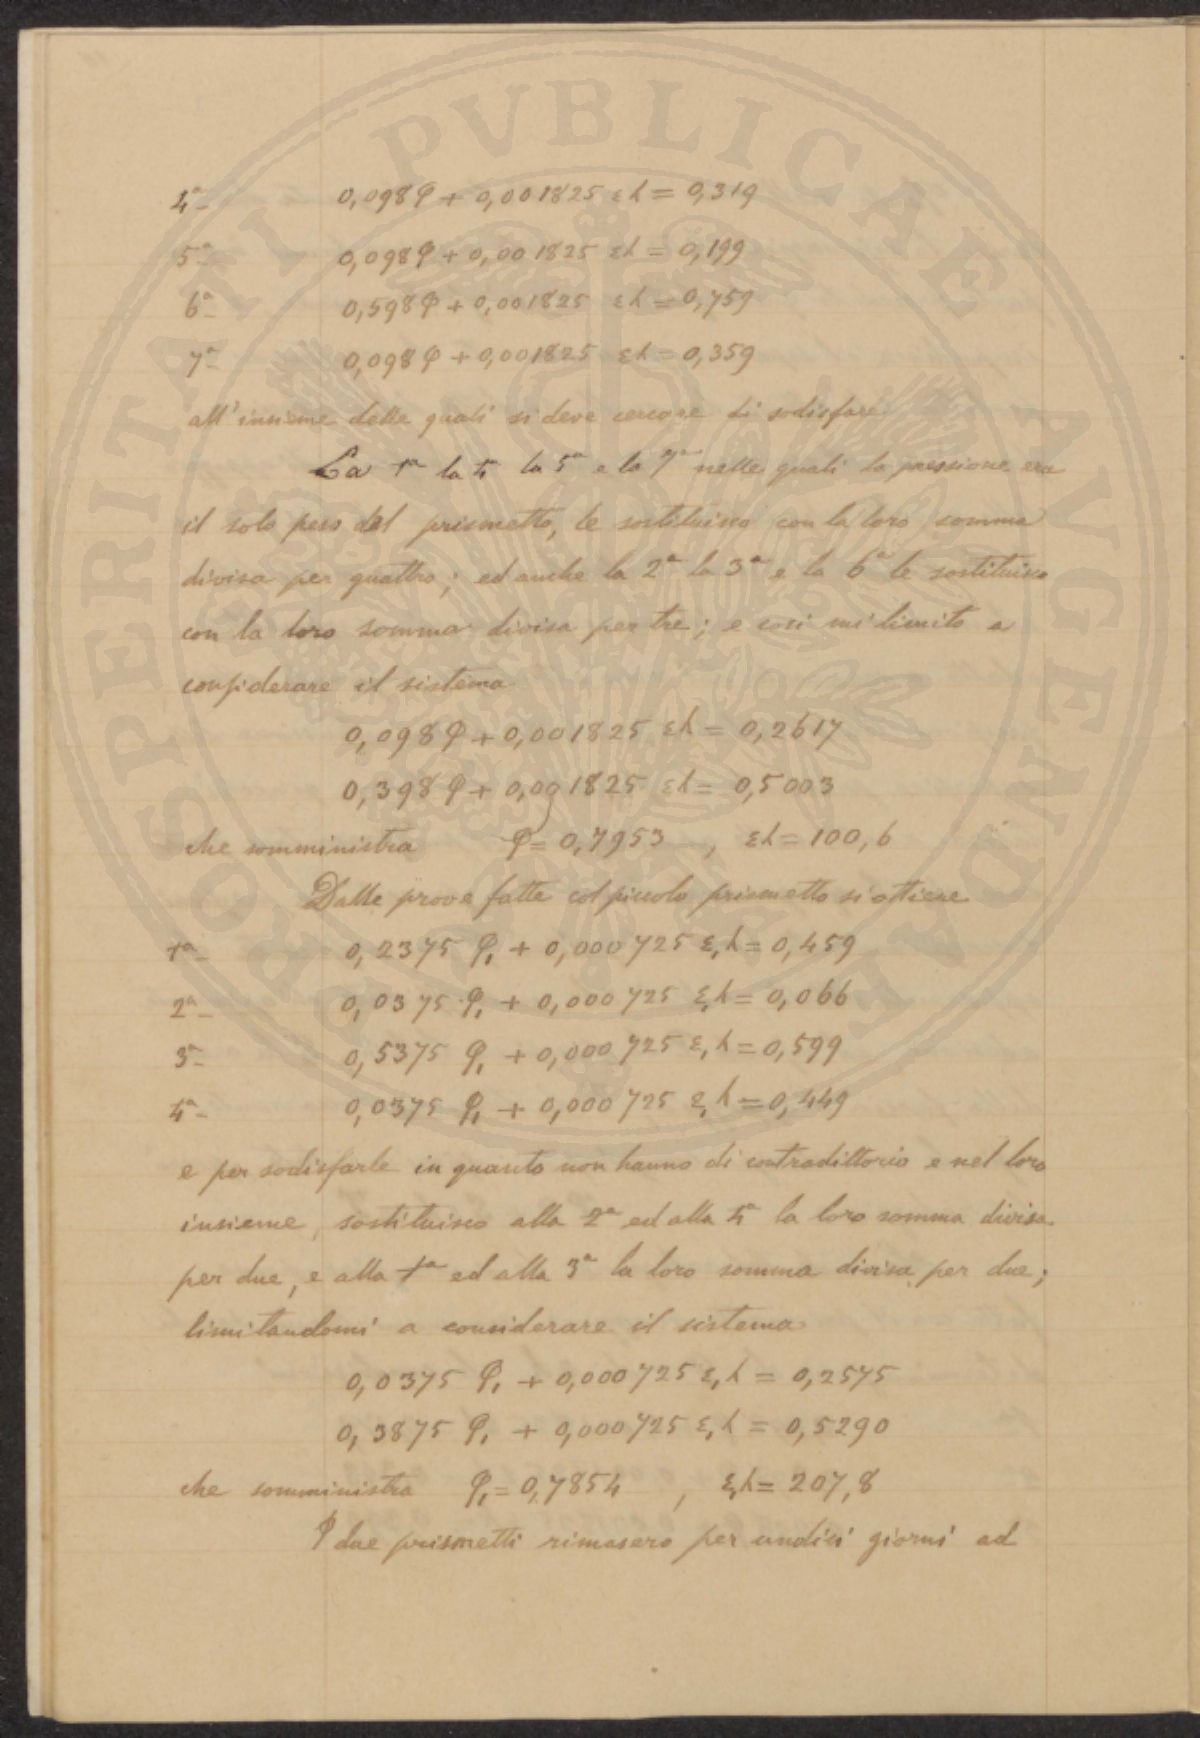 4ª— 0,098φ + 0,001825 εh = 0,319
5ª— 0,098φ + 0,001825 εh = 0,199
6ª— 0,598φ + 0,001825 εh = 0,759
7ª— 0,098φ + 0,001825 εh = 0,359
all'insieme delle quali si deve cercare di sodisfare.
La 1ª la 4ª la 5ª e la 7ª nelle quali la pressione era
il solo peso del prismetto, le sostituisco con la loro somma
divisa per quattro; ed anche la 2ª la 3ª e la 6ª le sostituisco
con la loro somma divisa per tre; e così mi limito a
considerare il sistema
0,098φ + 0,001825 εh = 0,2617
0,398φ + 0,001825 εh = 0,5003
che somministra φ = 0,7953 , εh = 100,6
Dalle prove fatte col piccolo prismetto si ottiene
1ª— 0,2375 φ₁ + 0,000725 ε₁h = 0,459
2ª— 0,0375 φ₁ + 0,000725 ε₁h = 0,066
3ª— 0,5375 φ₁ + 0,000725 ε₁h = 0,599
4ª— 0,0375 φ₁ + 0,000725 ε₁h = 0,449
e per sodisfarle in quanto non hanno di contradittorio e nel loro
insieme, sostituisco alla 2ª ed alla 4ª la loro somma divisa
per due, e alla 1ª ed alla 3ª la loro somma divisa per due;
limitandomi a considerare il sistema
0,0375 φ₁ + 0,000725 ε₁h = 0,2575
0,3875 φ₁ + 0,000725 ε₁h = 0,5290
che somministra φ₁ = 0,7854 , ε₁h = 207,8
I due prismetti rimasero per undici giorni ad
PROSPERITATI PVBLICAE AVGENDAE